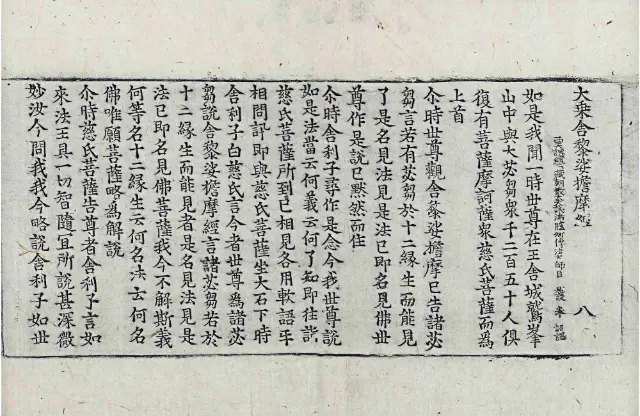 大乗舍黎娑擔摩經 八
傳法大師臣 護奉 詔譯
如是我聞一時世尊在王舍城鷲峯
山中與大苾芻衆千二百五十人俱
復有菩薩摩訶薩衆慈氏菩薩而爲
上首
尒時世尊觀舍黎娑擔摩已告諸苾
芻言若有苾芻於十二緣生而能見
了是名見法見是法已即名見佛世
尊作是說已黙然而住
尒時舍利子尋作是念今我世尊說
如是法當云何義云何了知即往詣
慈氏菩薩所到已相見各用軟語㸦
相問訊即與慈氏菩薩坐大石下時
舍利子白慈氏言今者世尊爲諸苾
芻說舍黎娑擔摩經言諸苾芻若於
十二緣生而能見者是名見法見是
法已即名見佛菩薩我今不解斯義
何等名十二緣生云何名法云何名
佛唯願菩薩略爲解說
尒時慈氏菩薩告尊者舍利子言如
來法王具一切智隨宜所說甚深微
妙汝今問我我今略說舍利子如世